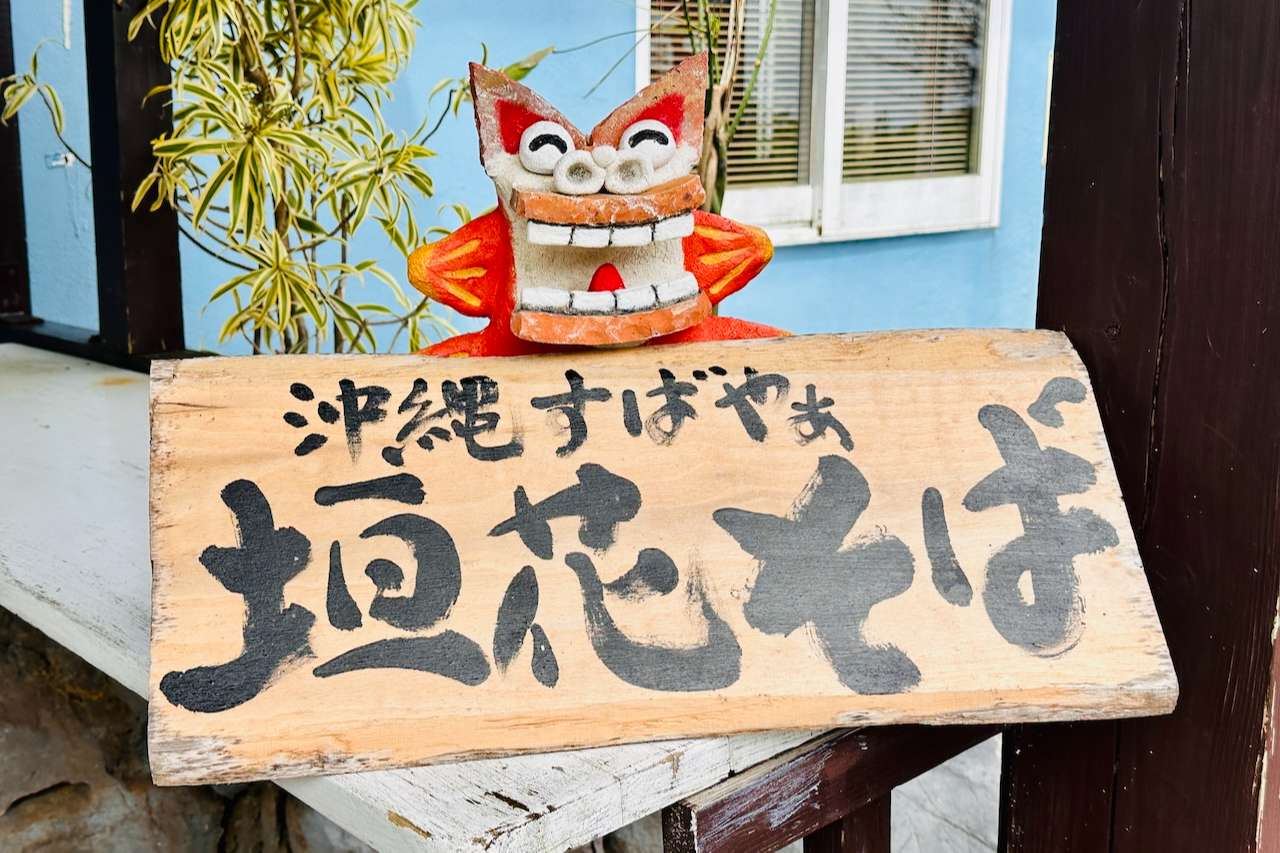 沖縄すばやぁ
垣花そば